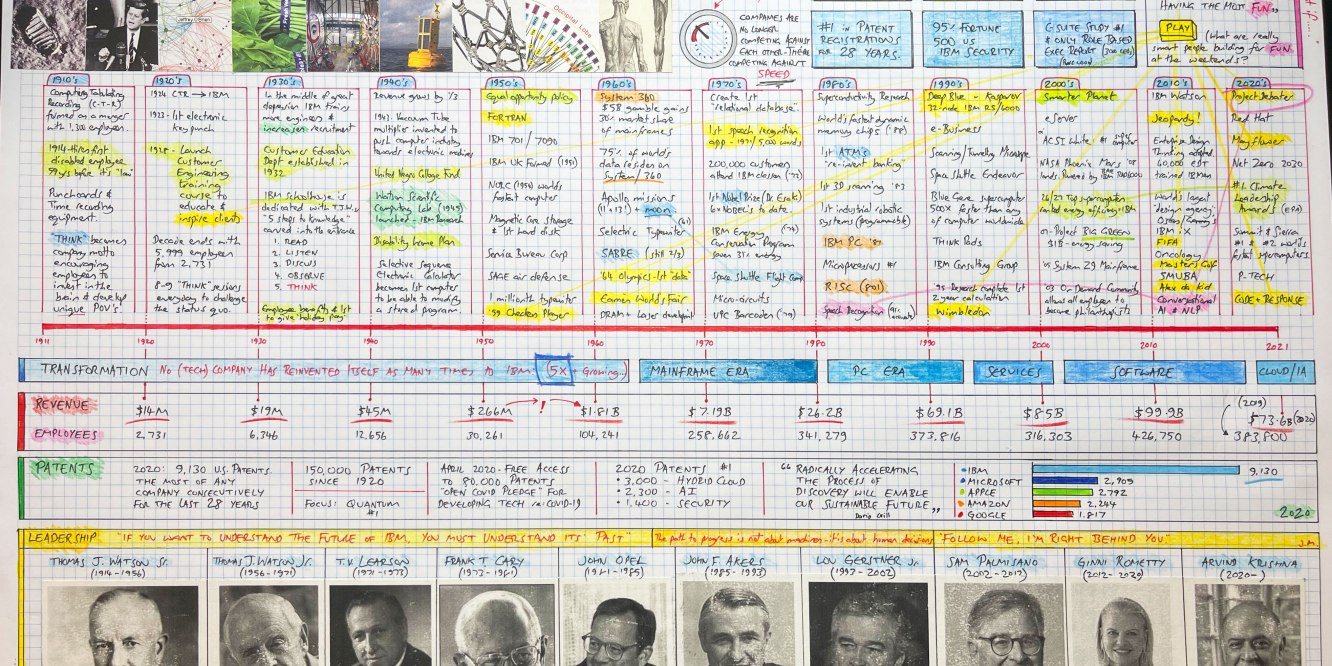 HAVING THE MOST FUN,
PLAY
(What are really
smart people building for FUN
at the weekends?)
Jeffrey O'Brien
Occipital
COMPANIES ARE
NO LONGER
COMPETING AGAINST
EACH OTHER - THEY'RE
COMPETING AGAINST
SPEED
#1 IN PATENT
REGISTRATIONS
FOR 28 YEARS.
95% FORTUNE
500 US
IBM SECURITY
C SUITE STUDY #1
& ONLY ROLE BASED
EXEC REPORT
1910's
Computing Tabulating
Recording (C-T-R)
formed as a merger
with 1,300 employees.
1914 - Hires first
disabled employee
59 yrs before it's "law"
Punchcards &
Time recording
equipment.
"THINK" becomes
company motto
encouraging
employees to
invest in the
brain & develop
unique POV's.
1920's
1924 CTR → IBM
1923 - 1st electronic
key punch
1928 - Launch
Customer
Engineering
training
course to
educate &
inspire clients
Decade ends with
5,999 employees
from 2,731
8-9 "THINK" sessions
everyday to challenge
the status quo.
1930's
In the middle of great
depression IBM trains
more engineers &
increases recruitment
Customer Education
Dept established in
1932
IBM schoolhouse is
dedicated with T.J.W.
"5 steps to knowledge"
carved into the entrance
1. READ
2. LISTEN
3. DISCUSS
4. OBSERVE
5. THINK
Employee benefits & 1st
to give 'holiday pay'
1940's
Revenue grows by 1/3
1943. Vacuum Tube
multiplier invented to
push computer industry
towards electronic machines
United Negro College Fund
Watson Scientific
Computing Lab (1945)
launched = IBM Research
Disability hiring Plan
Selective Sequence
Electronic Calculator
becomes 1st computer
to be able to modify
a stored program.
1950's
Equal opportunity policy
FORTRAN
IBM 701 / 7090
IBM UK Formed (1951)
NORC (1954) worlds
fastest computer
Magnetic Core Storage
& 1st hard disk
Service Bureau Corp
SAGE air defense
1 millionth typewriter
'59 Checkers Player
1960's
System 360
$5B gamble gains
30% market share
of mainframes
75% of worlds
data resides on
System/360
Apollo missions
(11 + 13!) moon
(61)
Selectric Typewriter
SABRE
'64 Olympics - 1st "data"
Eames Worlds Fair
DRAM + Laser development
1970's
Create 1st
'relational database'
1st speech recognition
app - 1971/5,000 words
200,000 customers
attend IBM classes ('72)
1st Nobel Prize (Dr. Esaki)
6 x NOBEL'S to date.
IBM Energy ('74)
Conservation Program
saves 31% energy
Space Shuttle Flight Comp
Micro-circuits
UPC Barcodes ('79)
1980's
Superconductivity Research
World's fastest dynamic
memory chips ('88)
1st ATM's
're-invent banking'
1st 3D scanning '83
1st industrial robotic
systems (programmable)
IBM PC '81
Microprocessors #1
RISC (801)
Speech Recognition (95% accurate)
1990's
Deep Blue - Kasparov
32-node IBM RS/6000
e-Business
Scanning/Tunnelling Microscope
Space Shuttle Endeavor
Blue Gene Supercomputer
500X faster than any
of computer worldwide
THINK Pads
IBM Consulting Group
'95 Research complete 1st
2 year calculation
Wimbledon
2000's
Smarter Planet
e Server
ACSI White #1 super computer
NASA Phoenix Mars '08
lands. Powered by IBM RAD6000
26/27 Top supercomputers
ranked energy efficiency = IBM
07 - Project BIG GREEN
$1B - energy saving
'05 System Z9 Mainframe
'03 On Demand Community
allows all employees to
become philanthropists
2010's
IBM Watson
Jeopardy!
Enterprise Design
Thinking adopted.
40,000 EDT
trained IBMers
World's largest
design agency
IBM iX
FIFA
Oncology
Masters Golf
SMUBA
Alex da kid
Conversational
AI & NLP
2020's
Project Debater
Red Hat
Mayflower
Net Zero 2030
#1 Climate
Leadership
Awards (EPA)
Summit & Sierra
#1 & #2 worlds
fastest supercomputers.
P-TECH
CODE + RESPONSE
1911 1920 1930 1940 1950 1960 1970 1980 1990 2000 2010 2021
TRANSFORMATION NO (TECH) COMPANY HAS REINVENTED ITSELF AS MANY TIMES TO IBM. (5X + Growing..)
MAINFRAME ERA
PC ERA
SERVICES
SOFTWARE
CLOUD/IA
REVENUE $14M $19M $45M $266M ! $1.81B $7.19B $26.2B $69.1B $85B $99.9B (2019) $73.6B (2020)
EMPLOYEES 2,731 6,346 12,656 30,261 104,241 258,662 341,279 373,816 316,303 426,750 383,800
PATENTS
2020: 9,130 U.S. PATENTS
THE MOST OF ANY
COMPANY CONSECUTIVELY
FOR THE LAST 28 YEARS
150,000 PATENTS
SINCE 1920
FOCUS: QUANTUM
#1
APRIL 2020 - FREE ACCESS
TO 80,000 PATENTS
"OPEN COVID PLEDGE" FOR
DEVELOPING TECH re: COVID-19
2020 PATENTS #1
• 3,000 - HYBRID CLOUD
• 2,300 - AI
• 1,400 - SECURITY
"RADICALLY ACCELERATING
THE PROCESS OF
DISCOVERY WILL ENABLE
OUR SUSTAINABLE FUTURE"
Dario Gill
• IBM 9,130
• MICROSOFT 2,905
• APPLE 2,792
• AMAZON 2,244
• GOOGLE 1,817
2020
LEADERSHIP "IF YOU WANT TO UNDERSTAND THE FUTURE OF IBM, YOU MUST UNDERSTAND ITS' PAST"
The path to progress is not about machines - it's about human decisions
"FOLLOW ME, I'M RIGHT BEHIND YOU." J.M.
THOMAS J. WATSON Sr
(1914-1956)
THOMAS J. WATSON Jr.
(1956-1971)
T.V. LEARSON
(1971-1973)
FRANK T CARY
(1973-1981)
JOHN OPEL
(1981-1985)
JOHN F. AKERS
(1985-1993)
LOU GERSTNER Jr
(1993-2002)
SAM PALMISANO
(2002-2012)
GINNI ROMETTY
(2012-2020)
ARVIND KRISHNA
(2020-)